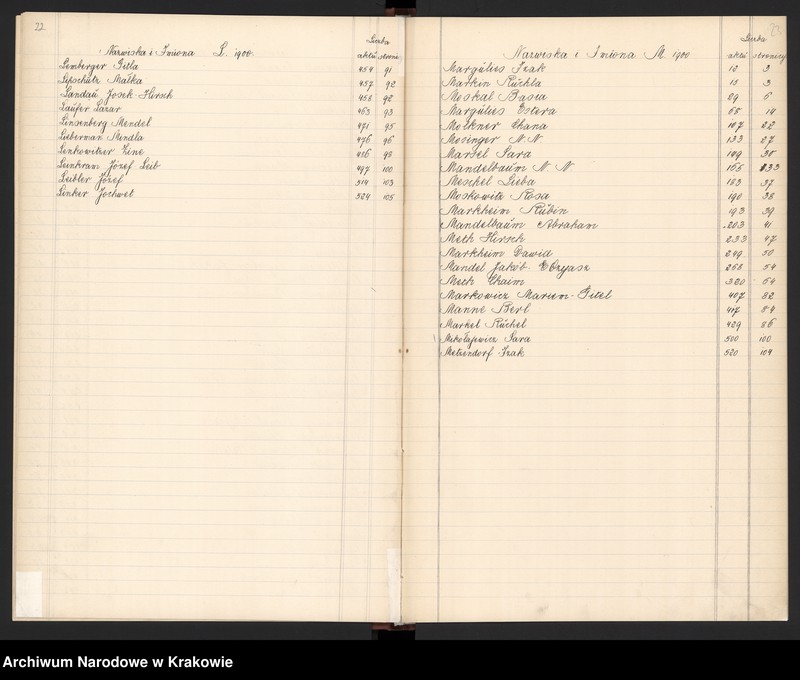 22
Liczba
Nazwiska i Imiona L. 1900.
aktu stronic
Lemberger Gitla 454 91
Lipschütz Małka 457 92
Landau Josek-Hirsch 458 92
Laufer Lazar 463 93
Linsenberg Mendel 471 95
Lieberman Mindla 476 96
Lenkowitzer 486 98
Leinkram Józef Leib 497 100
Leibler Józef 514 103
Linker Jochwet 524 105
Liczba
Nazwiska i Imiona M. 1900
aktu stronicy
Margulies Izak 12 3
Markin Ruchla 13 3
Moskal Basia 29 6
Margulies Estera 68 14
Mockner Chana 107 22
Mosinger N. N. 133 27
Marsel Sara 149 30
Mandelbaum N. N 165 33
Meschel Lieba 183 37
Moskowitz Rosa 190 38
Markheim Rubin 193 39
Mandelbaum Abraham 203 41
Meth Hirsch 233 47
Markheim Dawid 249 50
Mandel Jakób 268 54
Meth Chaim 320 64
Markowicz Mariem-Gitel 407 82
Manne Berl 417 84
Markel Ruchel 429 86
Mikołajewicz Sara 500 100
Metzendorf Izak 520 104
Archiwum Narodowe w Krakowie